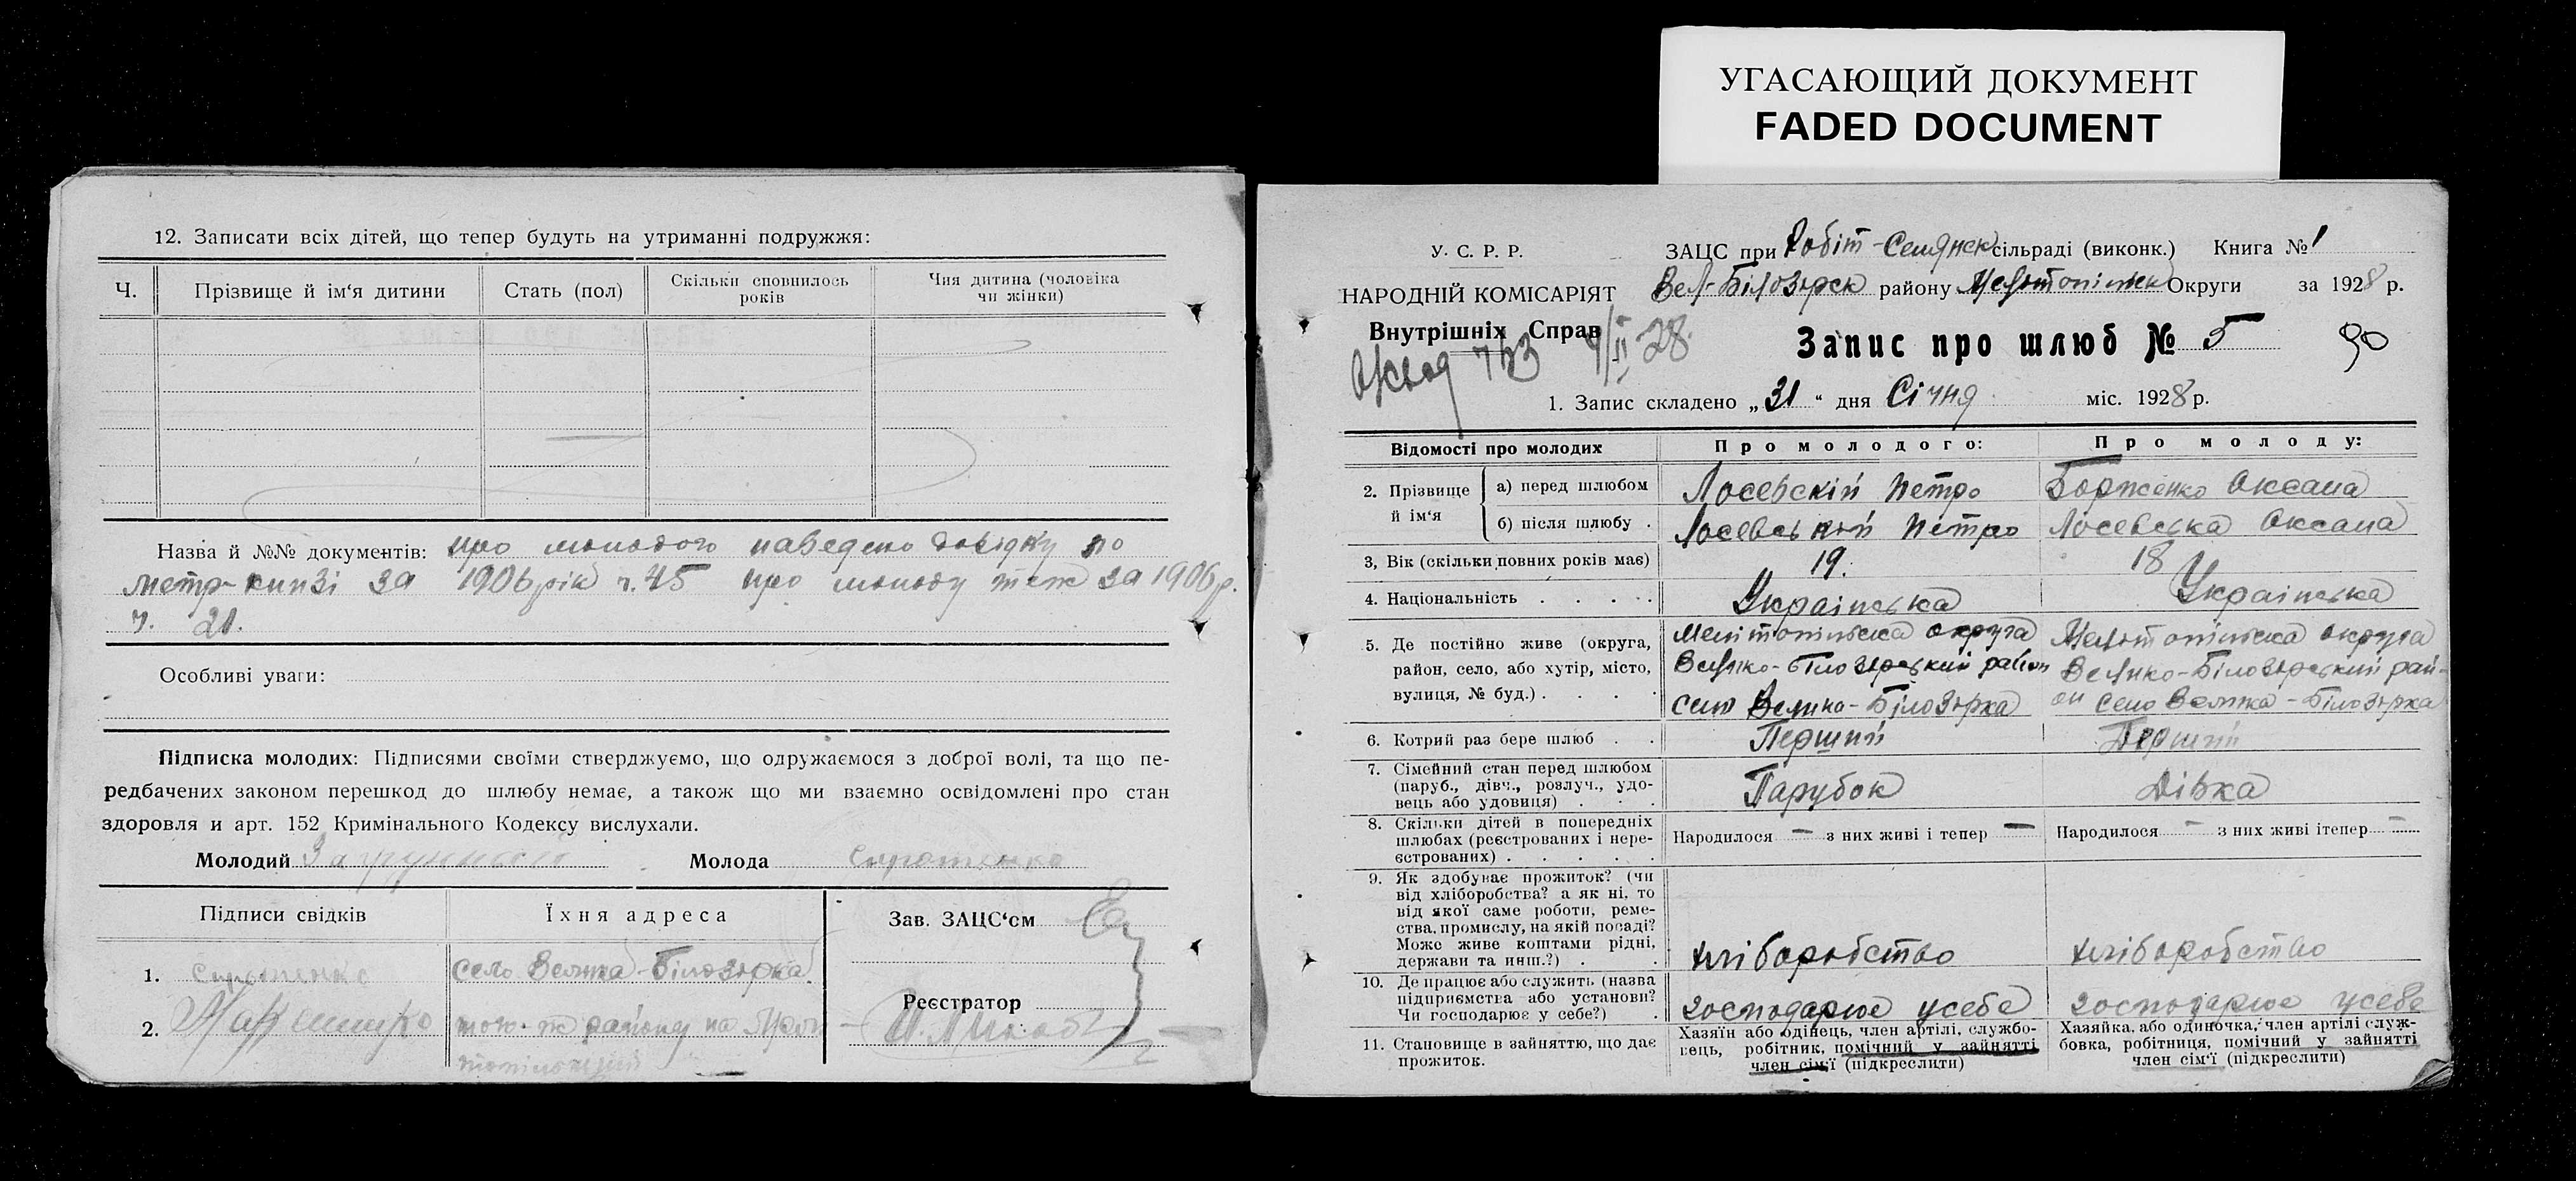 УГАСАЮЩИЙ ДОКУМЕНТ
FADED DOCUMENT
12. Записати всіх дітей, що тепер будуть на утриманні подружжя:
Ч. Прізвище й ім'я дитини Стать (пол) Скільки сповнилось років Чия дитина (чоловіка чи жінки)
Назва й №№ документів: про молодого наведено довідку по
метр-книзі за 1906 рік ч. 45 про молоду теж за 1906 р.
ч. 21.
Особливі уваги:
Підписка молодих: Підписями своїми стверджуємо, що одружаємося з доброї волі, та що пе-
редбачених законом перешкод до шлюбу немає, а також що ми взаємно освідомлені про стан
здоровля и арт. 152 Кримінального Кодексу вислухали.
Молодий Молода Сиротенко
Підписи свідків Їхня адреса Зав. ЗАЦС'єм
1. Сиротенко село Велика-Білозірка
2. того-ж району на
Реєстратор
У. С. Р. Р.
НАРОДНІЙ КОМІСАРІЯТ
Внутрішніх Справ
743 9/II-28
ЗАЦС при Робіт-Селянск сільраді (виконк.) Книга № 1
Вел-Білозірск району Мелітопільск Округи за 1928 р.
Запис про шлюб № 5 90
1. Запис складено „31" дня Січня міс. 1928 р.
Відомості про молодих Про молодого: Про молоду:
2. Прізвище й ім'я
а) перед шлюбом Лосевскій Петро Борженко Оксана
б) після шлюбу . Лосевський Петро Лосевська Оксана
3, Вік (скільки повних років має) 19. 18
4. Національність . . . . Українська Українська
5. Де постійно живе (округа, Мелітопільска округа Мелітопільска округа
район, село, або хутір, місто, Велико-Білозірський район Велико-Білозірський рай-
вулиця, № буд.) . . . . село Велика-Білозірка он село Велика-Білозірка
6. Котрий раз бере шлюб . . Перший Перший
7. Сімейний стан перед шлюбом
(паруб., дівч., розлуч., удо-
вець або удовиця) . . . Парубок Дівка
8. Скільки дітей в попередніх
шлюбах (реєстрованих і нере-
єстрованих) . . . . . Народилося — з них живі і тепер — Народилося - з них живі ітепер -
9. Як здобуває прожиток? (чи
від хліборобства? а як ні, то
від якої саме роботи, реме-
ства, промислу, на якій посаді?
Може живе коштами рідні,
держави та инш.?) . . хліборобство хліборобство
10. Де працює або служить (назва
підприємства або установи?
Чи господарює у себе?) . господарює усебе господарює усебе
11. Становище в зайняттю, що дає
прожиток.
Хазяїн або одінець, член артілі, службо-
вець, робітник, помічний у зайнятті
член сім'ї (підкреслити)
Хазяйка, або одиночка, член артілі служ-
бовка, робітниця, помічний у зайнятті
член сім'ї (підкреслити)